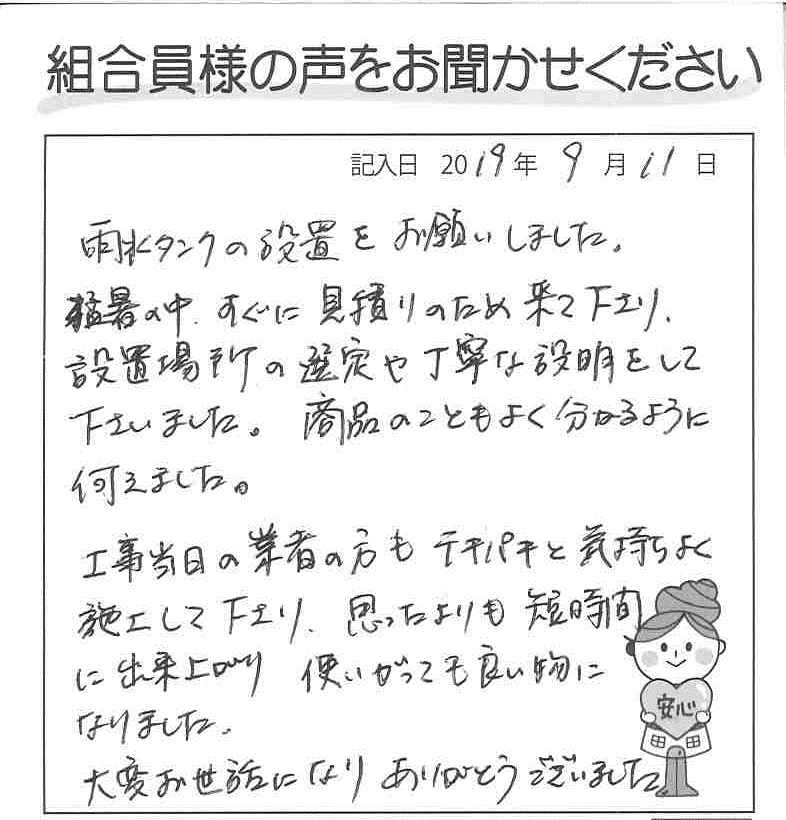 組合員様の声をお聞かせください
記入日 2019年 9月 11日
雨水タンクの設置をお願いしました。
猛暑の中、すぐに見積りのため来て下さり、
設置場所の選定や丁寧な説明をして
下さいました。商品のこともよく分かるように
伺えました。
工事当日の業者の方もテキパキと気持ちよく
施工して下さり、思ったよりも短時間
に出来上がり 使いがっても良い物に
なりました。
大変お世話になりありがとうございました
安心